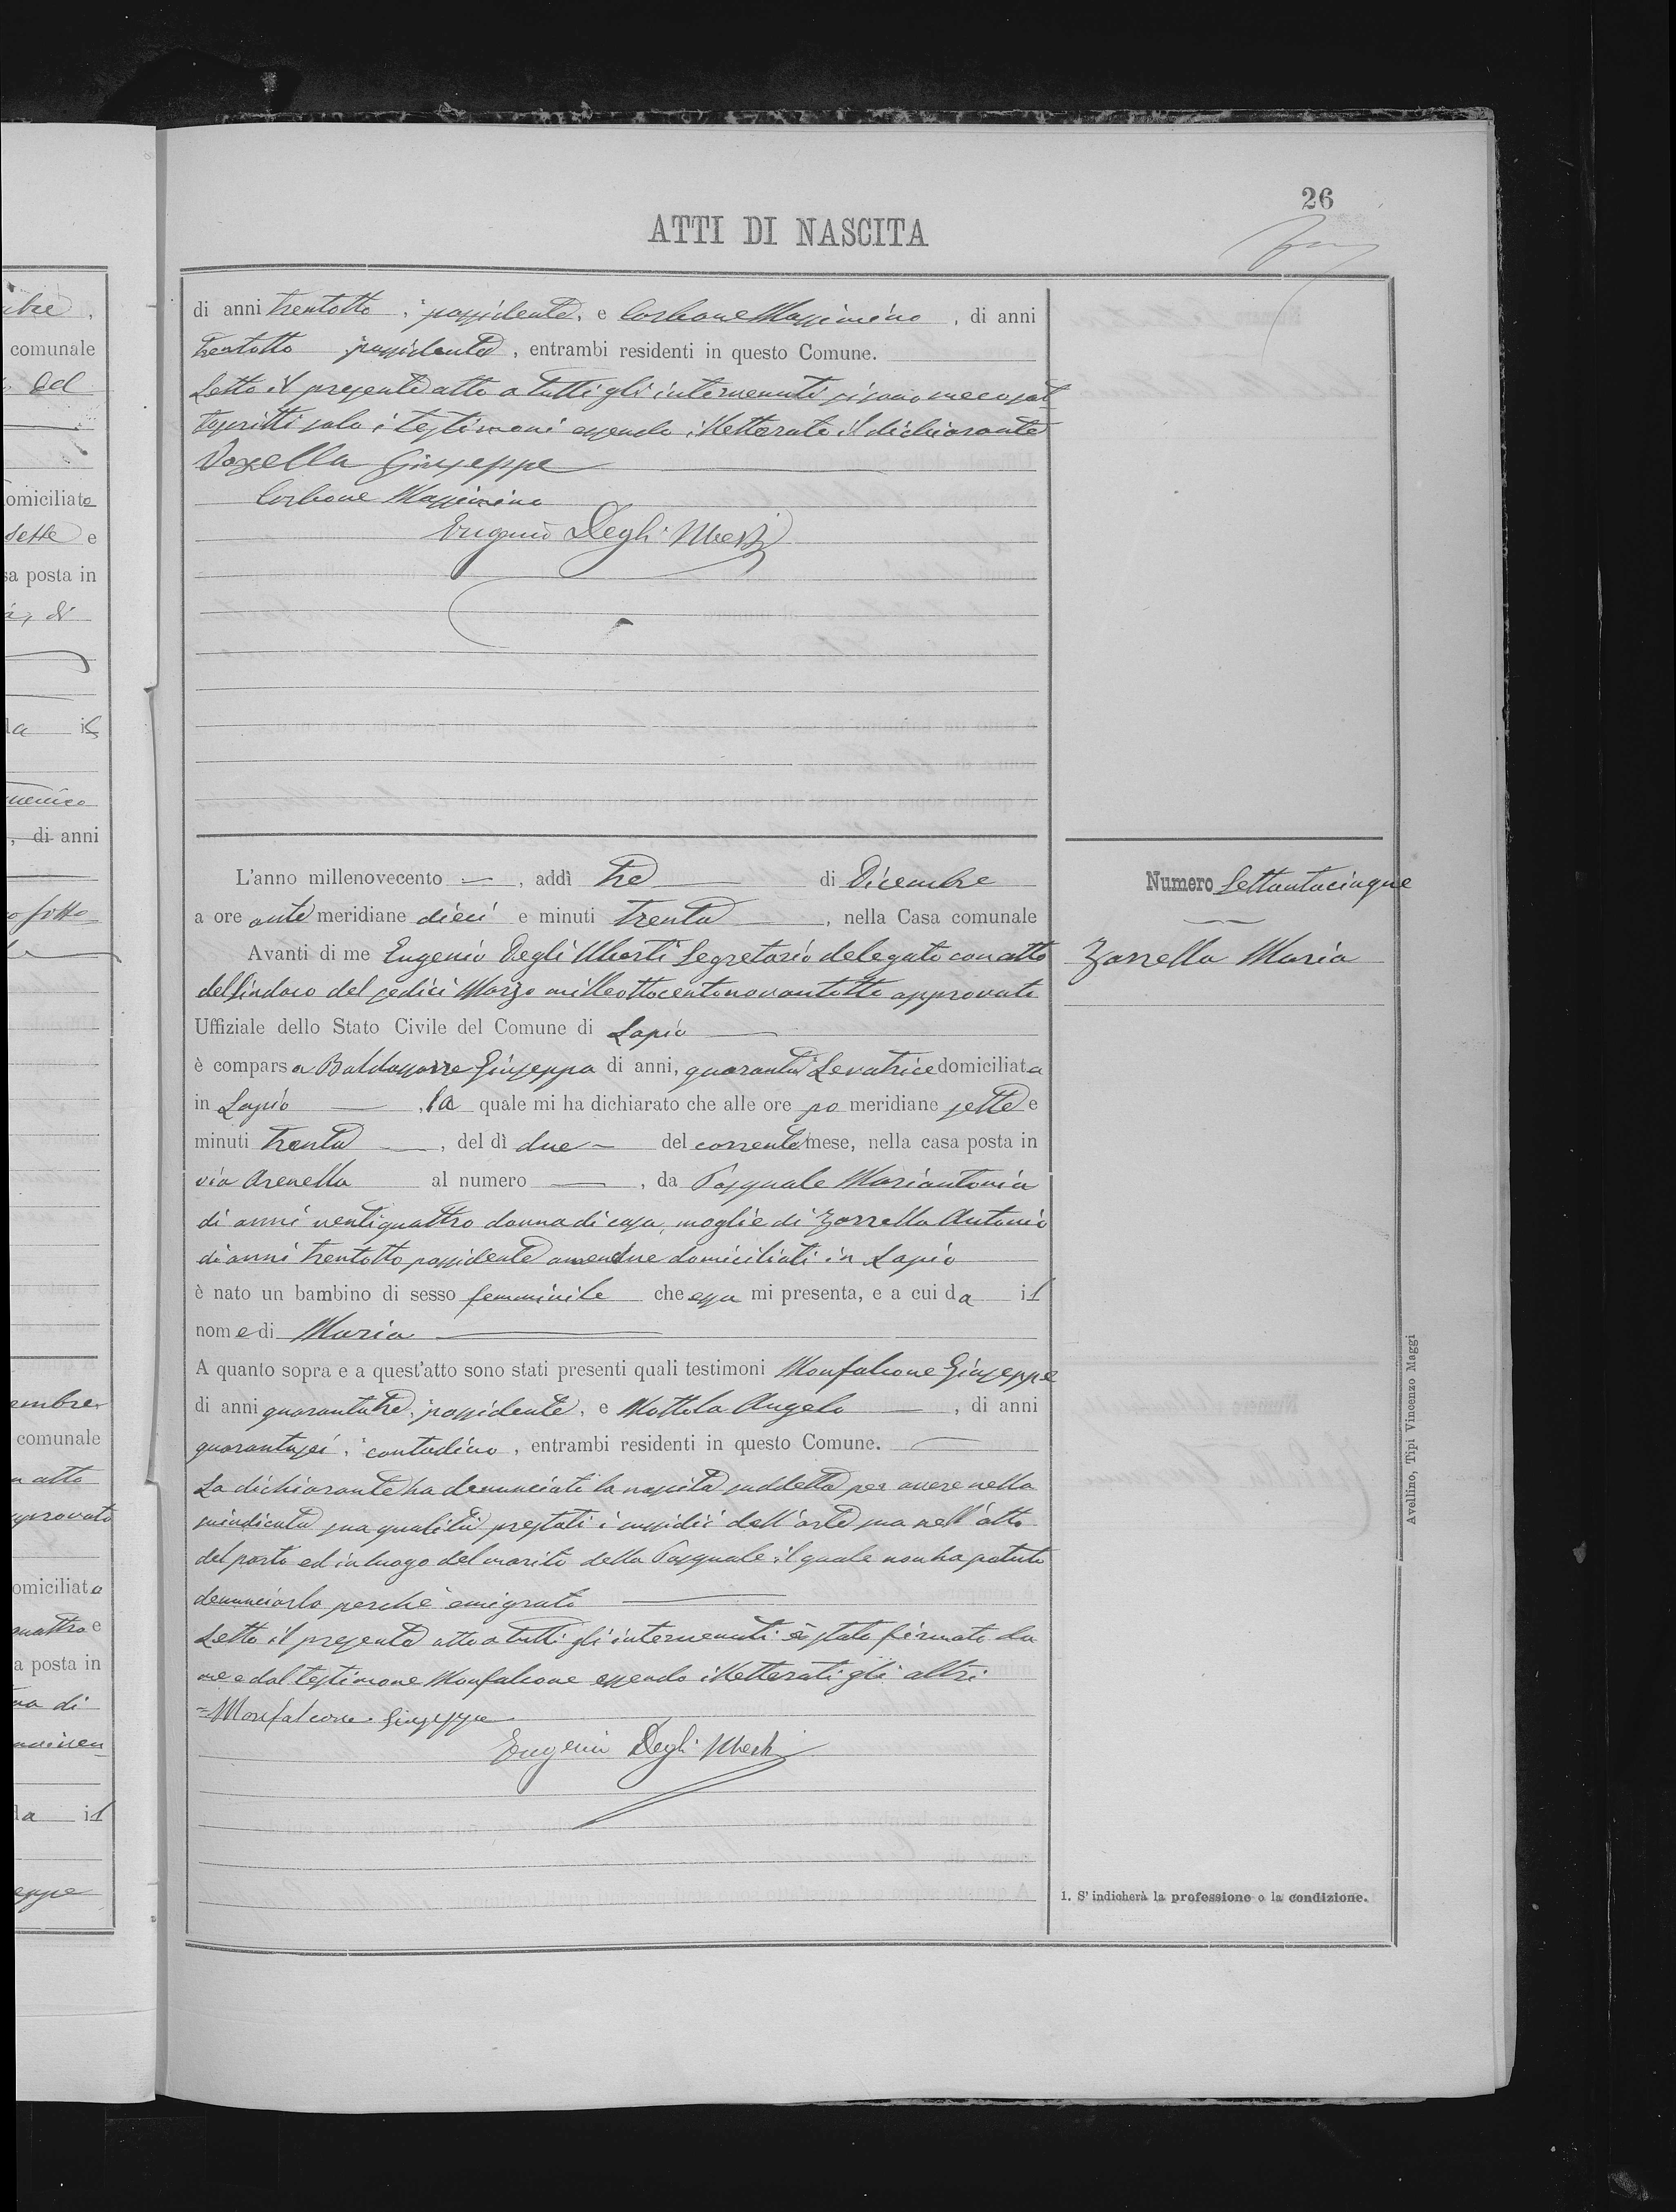 26
ATTI DI NASCITA
di anni trentotto, possidente, e Carbone Massimino, di anni
trentotto possidente, entrambi residenti in questo Comune.
Letto il presente atto a tutti gli intervenuti si sono meco sot
toscritti solo i testimoni essendo illetterato il dichiarante
Vozzella Giuseppe
Carbone Massimino
Eugenio Degli Uberti
L'anno millenovecento —, addì tre di Dicembre
a ore ante meridiane dieci e minuti trenta, nella Casa comunale
Avanti di me Eugenio Degli Uberti Segretario delegato con atto
del Sindaco del sedici Marzo milleottocentonovantotto approvato
Uffiziale dello Stato Civile del Comune di Lapio
è comparsa Baldassarre Giuseppa di anni, quaranta Levatrice domiciliata
in Lapio —, la quale mi ha dichiarato che alle ore po meridiane sette e
minuti trenta —, del dì due — del corrente mese, nella casa posta in
via Arenella al numero —, da Pasquale Mariantonia
di anni ventiquattro donna di casa, moglie di Zarrella Antonio
di anni trentotto possidente amendue domiciliati in Lapio
è nato un bambino di sesso femminile che essa mi presenta, e a cui da il
nome di Maria
A quanto sopra e a quest'atto sono stati presenti quali testimoni Monfalcone Giuseppe
di anni quarantatre, possidente, e Mottola Angelo —, di anni
quarantasei, contadino, entrambi residenti in questo Comune.
La dichiarante ha denunciato la nascita suddetta per avere nella
suindicata sua qualità prestati i sussidii dell'arte sua nell'atto
del parto ed in luogo del marito della Pasquale il quale non ha potuto
denunciarlo perchè emigrato
Letto il presente atto a tutti gli intervenuti è stato firmato da
me e dal testimone Monfalcone essendo illetterati gli altri
= Monfalcone Giuseppe
Eugenio Degli Uberti
Numero Settantacinque
Zarrella Maria
1. S'indicherà la professione o la condizione.
Avellino, Tipi Vincenzo Maggi